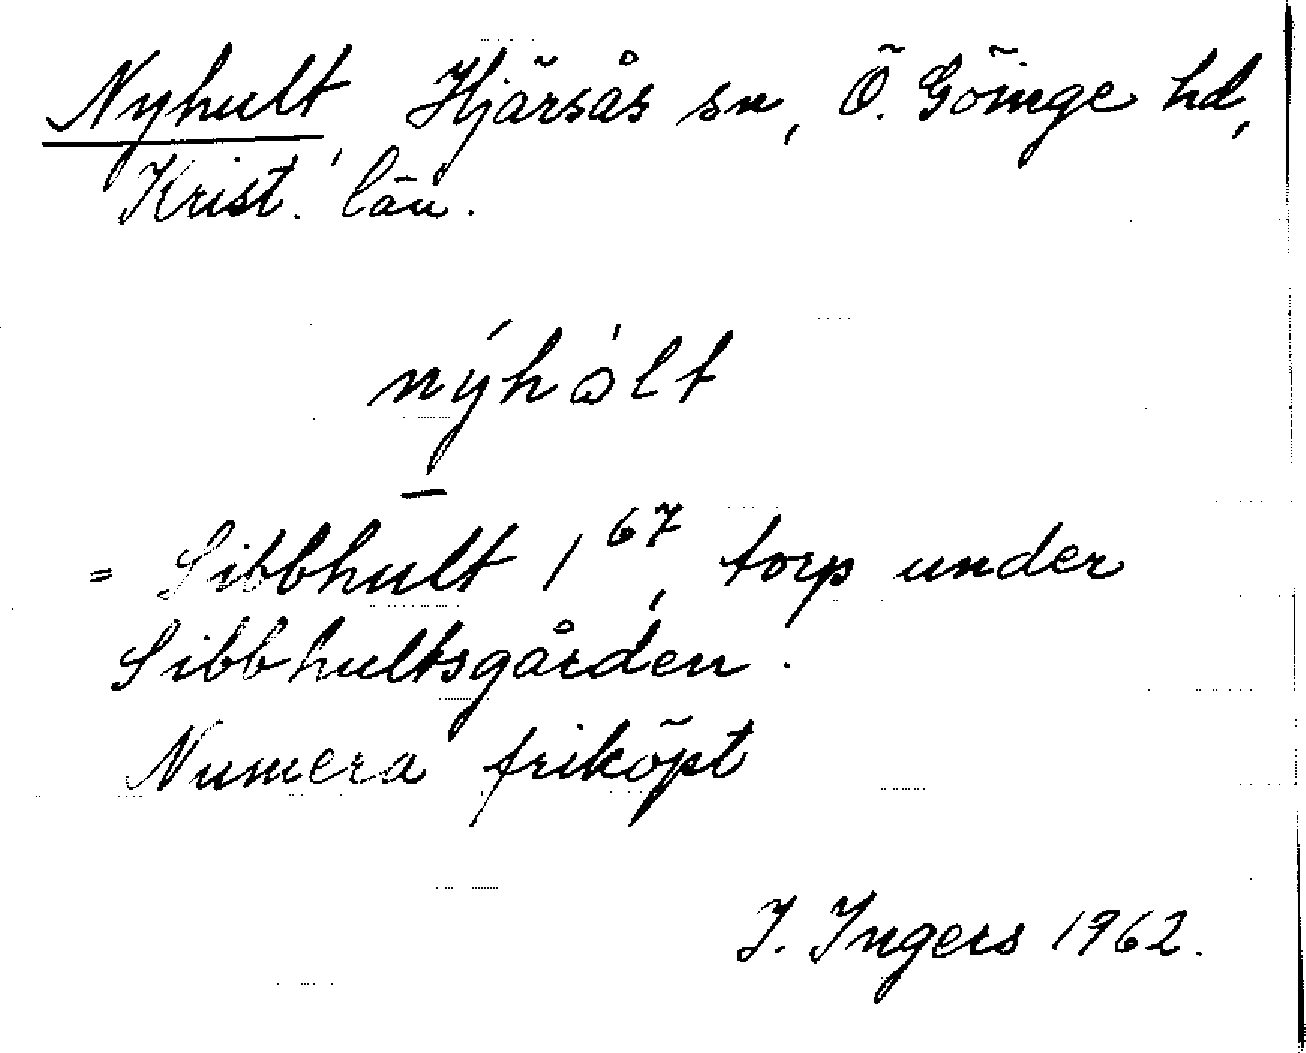 Nyhult, Hjärsås sn, Ö. Göinge hd,
Krist. län.
nýhòlt
= Sibbhult 1⁶⁷, torp under
Sibbhultsgården.
Numera friköpt
I. Ingers 1962.